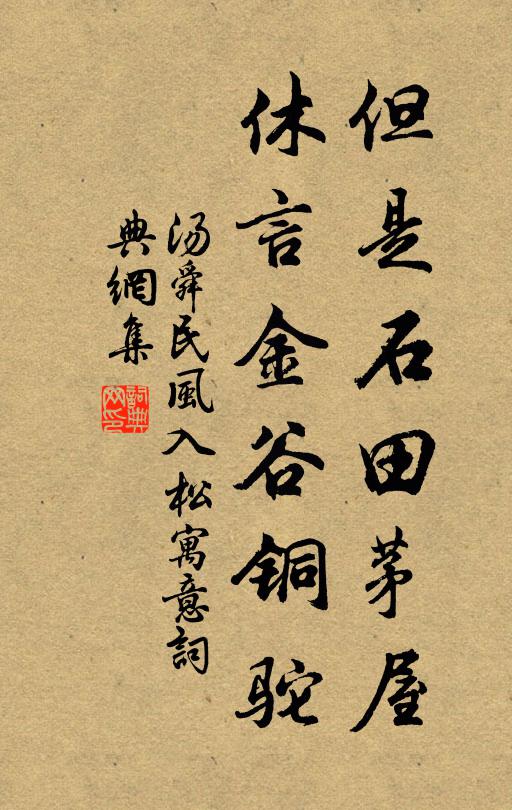 但是石田茅屋
休言金谷铜驼
汤舜民風入松寓意詞
典網集
詞典网印